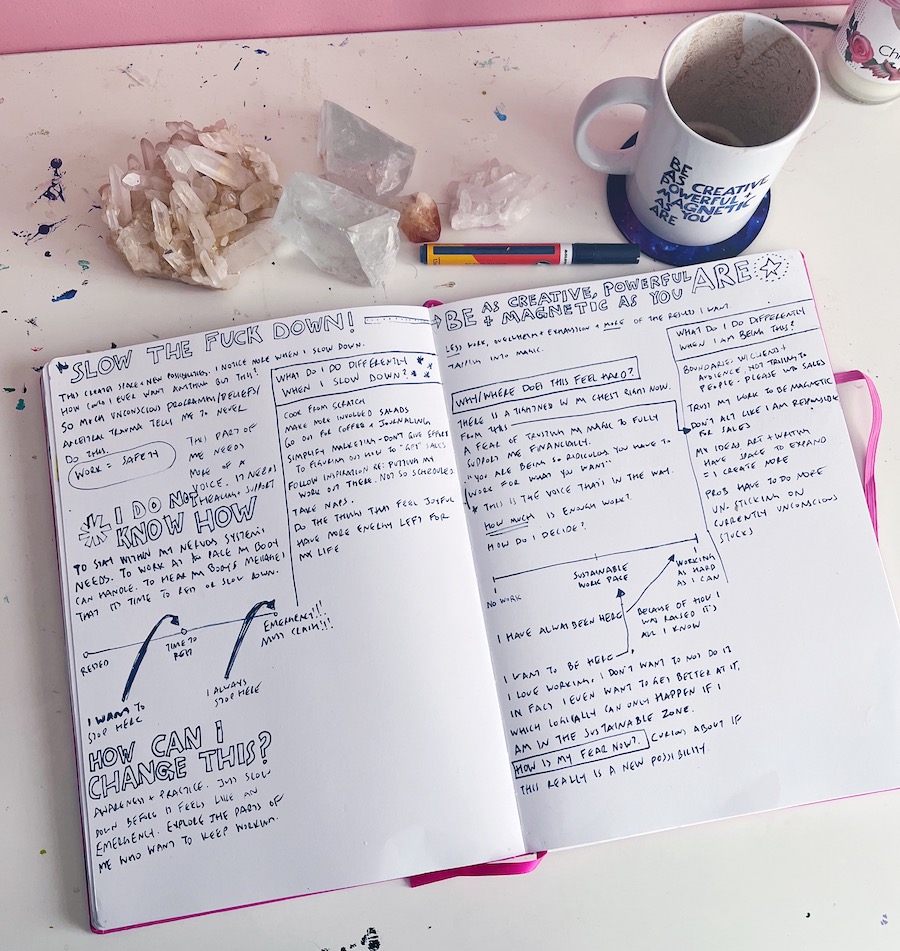 BE
AS
POWERFUL +
AS CREATIVE
MAGNETIC
AS YOU
ARE
SLOW THE FUCK DOWN!
THIS CREATES SPACE + NEW POSSIBILITIES. I NOTICE MORE WHEN I SLOW DOWN.
HOW COULD I EVER WANT ANYTHING BUT THIS?
SO MUCH UNCONSCIOUS PROGRAMMING/BELIEFS/
ANCESTRAL TRAUMA TELLS ME TO NEVER
DO THIS.
WORK = SAFETY
THIS PART OF
ME NEEDS
MORE OF A
VOICE. IT NEEDS
HEALING, SUPPORT
I DO NOT
KNOW HOW
TO STAY WITHIN MY NERVOUS SYSTEM'S
NEEDS. TO WORK AT THE PACE MY BODY
CAN HANDLE. TO HEAR MY BODY'S MESSAGES
THAT IT'S TIME TO REST OR SLOW DOWN.
RESTED
TIME TO
REST
EMERGENCY!!!
MUST CLAIM!!!
I WANT TO
STOP HERE
I ALWAYS
STOP HERE
HOW CAN I
CHANGE THIS?
AWARENESS + PRACTICE. JUST SLOW
DOWN BEFORE IT FEELS LIKE AN
EMERGENCY. EXPLORE THE PARTS OF
ME WHO WANT TO KEEP WORKING.
WHAT DO I DO DIFFERENTLY
WHEN I SLOW DOWN?
COOK FROM SCRATCH
MAKE MORE INVOLVED SALADS
GO OUT FOR COFFEE + JOURNALING
SIMPLIFY MARKETING - DON'T GIVE EFFORT
TO FIGURING OUT HOW TO "GET" SALES
FOLLOW INSPIRATION RE: PUTTING MY
WORK OUT THERE, NOT SO SCHEDULED
TAKE NAPS.
DO THE THINGS THAT FEEL JOYFUL
HAVE MORE ENERGY LEFT FOR
MY LIFE
BE AS CREATIVE, POWERFUL
+ MAGNETIC AS YOU ARE
LESS WORK, OVERWHELM + EXPANSION + MORE OF THE RESULTS I WANT
TAPPING INTO MAGIC.
WHY/WHERE DOES THIS FEEL HARD?
THERE IS A TIGHTNESS IN MY CHEST RIGHT NOW.
FROM THIS
A FEAR OF TRUSTING MY MAGIC TO FULLY
SUPPORT ME FINANCIALLY.
"YOU ARE BEING SO RIDICULOUS. YOU HAVE TO
WORK FOR WHAT YOU WANT"
THIS IS THE VOICE THAT'S IN THE WAY.
HOW MUCH IS ENOUGH WORK?
HOW DO I DECIDE?
NO WORK
SUSTAINABLE
WORK PACE
WORKING
AS HARD
AS I CAN
I HAVE ALWAYS BEEN HERE
BECAUSE OF HOW I
WAS RAISED IT'S
ALL I KNOW
I WANT TO BE HERE
I LOVE WORKING. I DON'T WANT TO NOT DO IT
IN FACT I EVEN WANT TO GET BETTER AT IT,
WHICH LOGICALLY CAN ONLY HAPPEN IF I
AM IN THE SUSTAINABLE ZONE.
HOW IS MY FEAR NOW? CURIOUS ABOUT IF
THIS REALLY IS A NEW POSSIBILITY.
WHAT DO I DO DIFFERENTLY
WHEN I AM BEING THIS?
BOUNDARIES W/ CLIENTS +
AUDIENCE, NOT TRYING TO
PEOPLE-PLEASE W/ SALES
TRUST MY WORK TO BE MAGNETIC
DON'T ACT LIKE I AM RESPONSIBLE
FOR SALES
MY IDEAS ART + WRITING
HAVE SPACE TO EXPAND
= I CREATE MORE
PROB HAVE TO DO MORE
UN-STICKING ON
CURRENTLY UNCONSCIOUS
STUCKS